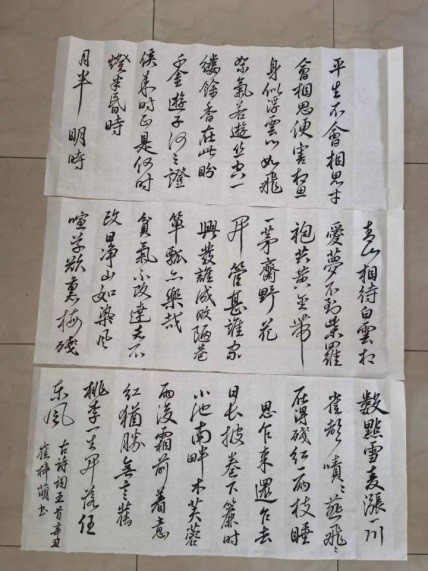 平生不會相思才
會相思便害相思
身似浮雲心如飛
絮氣若遊丝空一
縷餘香在此盼
千金遊子何之證
候來時正是何時
燈半昏時
月半明時
青山相待白雲相
愛夢不到紫羅
袍共黃金帶
一茅齋野花
開管甚誰家
興廢誰成敗陋巷
簞瓢亦樂哉
貧氣不改達志不
改日净山如染風
暄草欲薰梅殘
數點雪麥漲一川
雀聲嘖嘖燕飛飛
在得殘紅一兩枝睡
思乍來還乍去
日長披卷下簾時
小池南畔木芙蓉
雨後霜前着意
紅猶勝無言舊
桃李一生開落任
东風
古詩詞五首辛丑
崔梓萌書